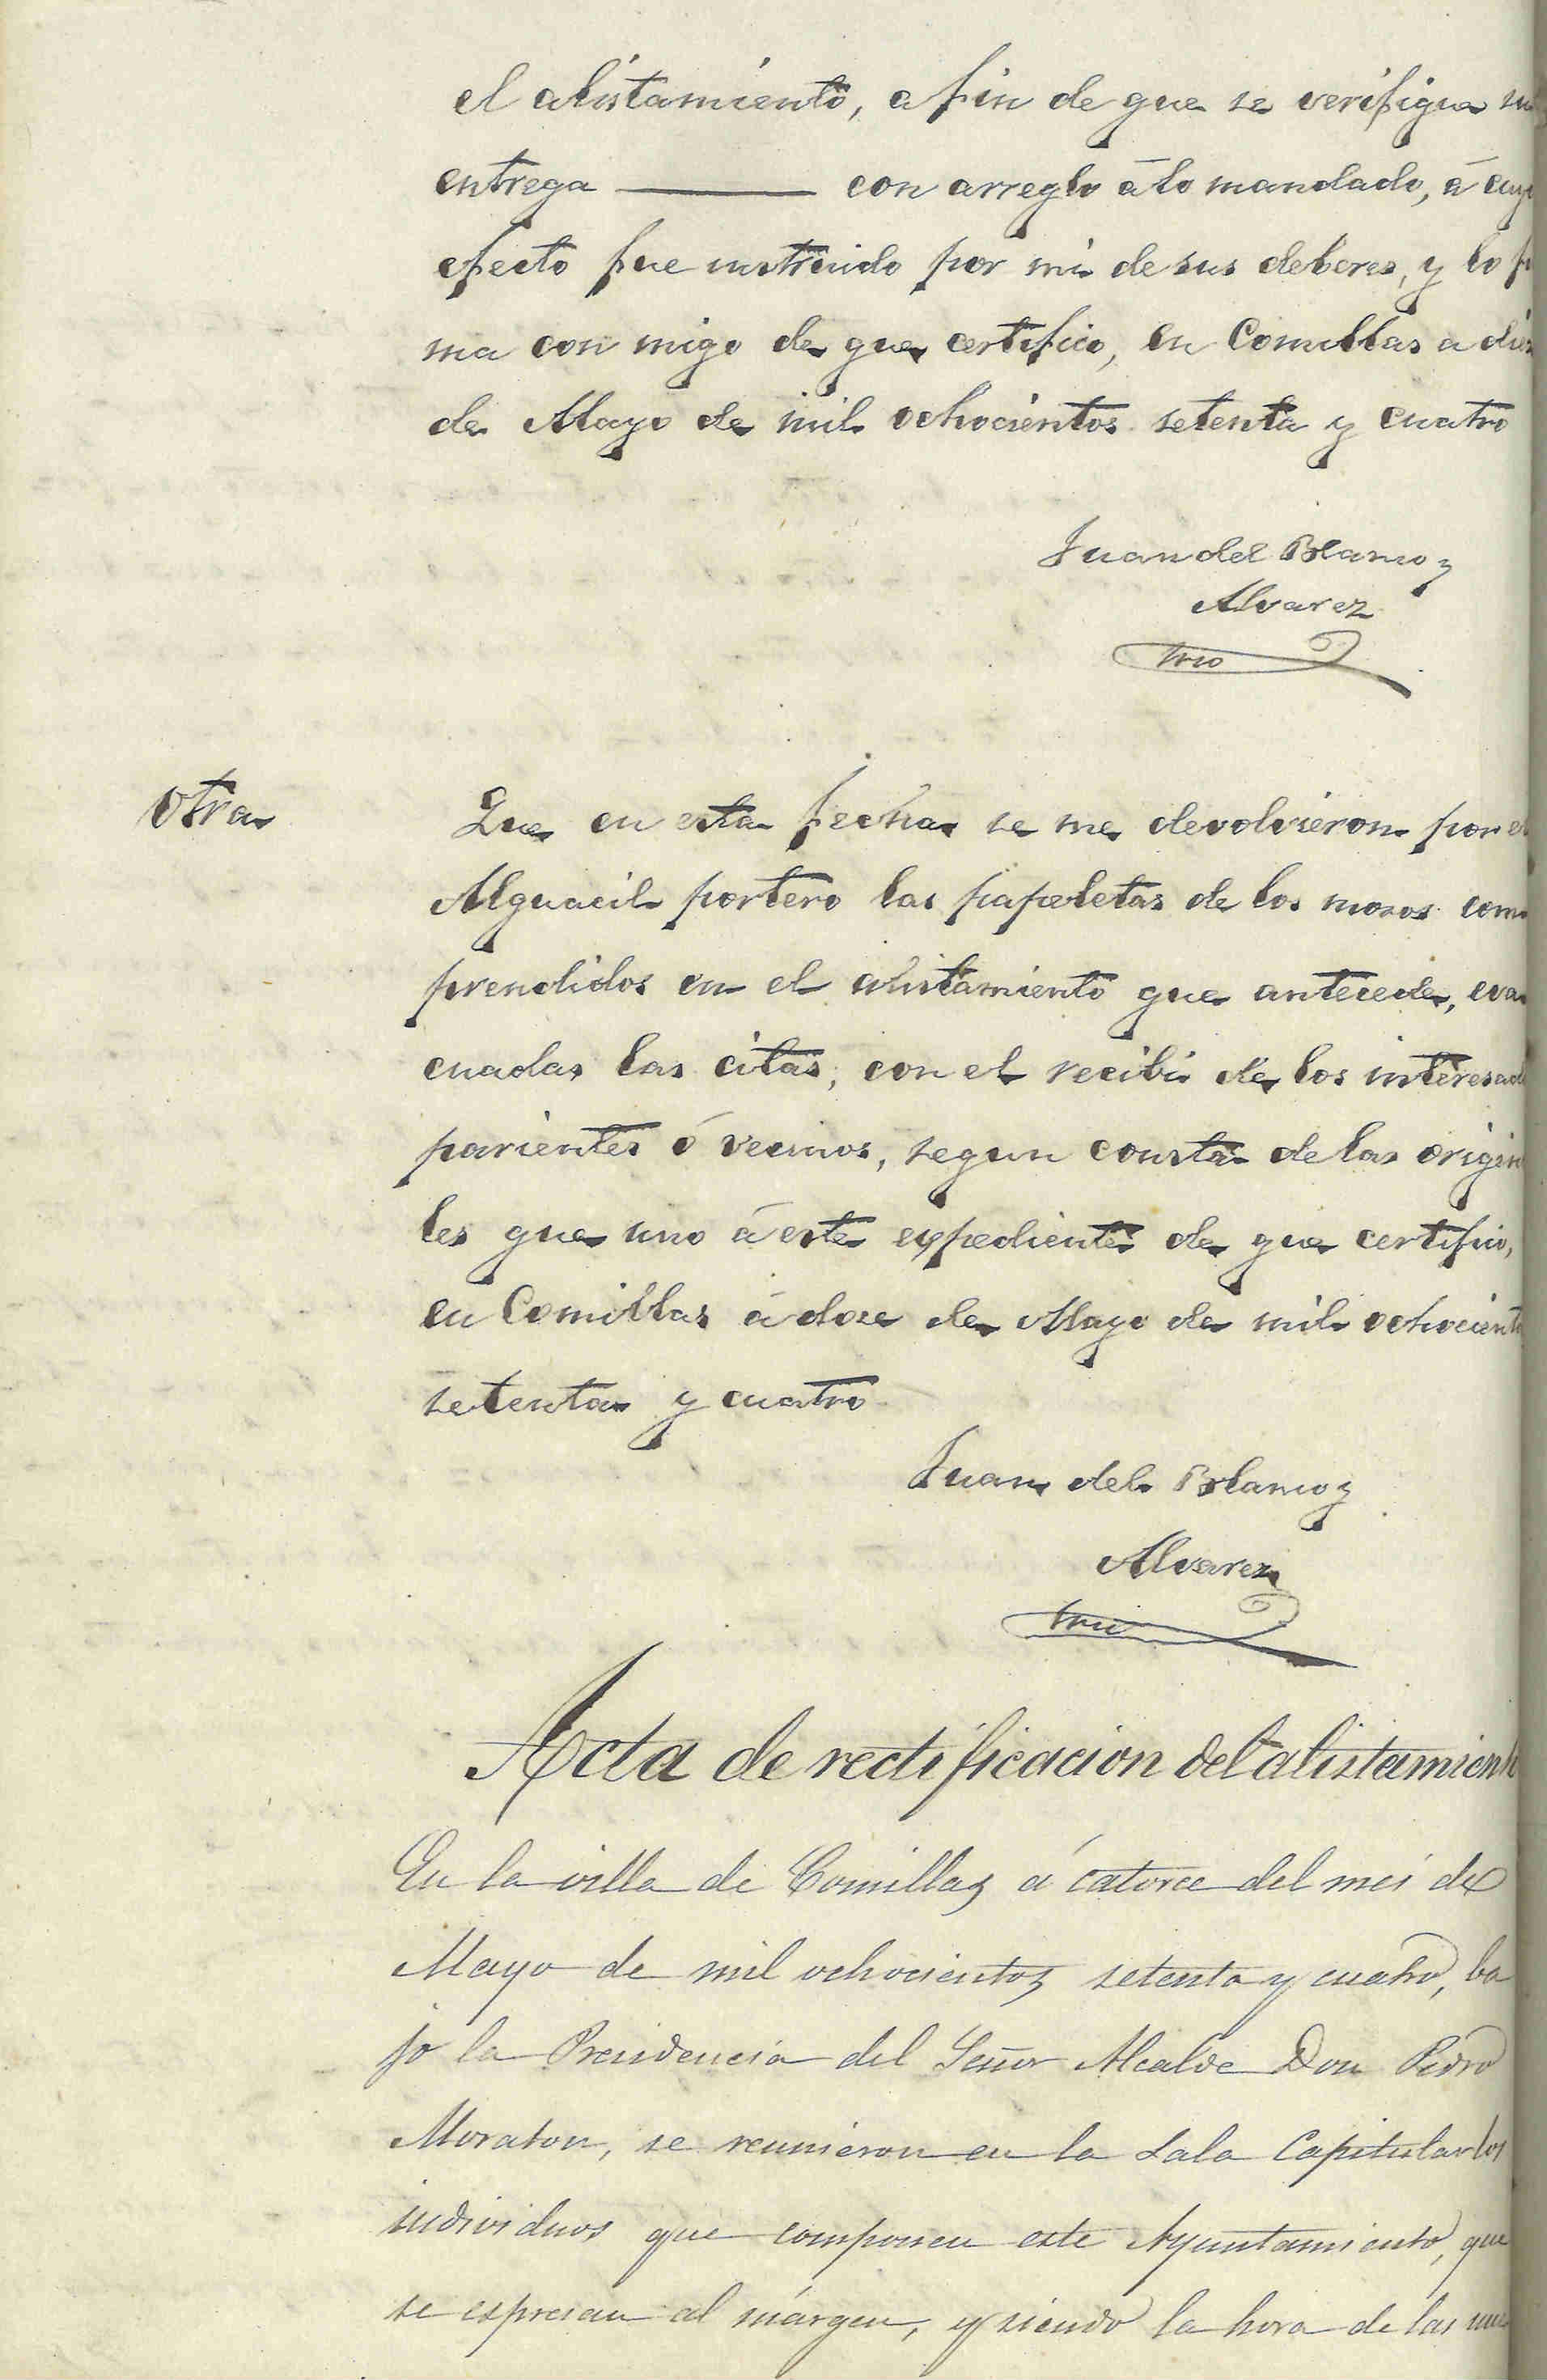 el alistamiento, a fin de que se verifique su
entrega ——— con arreglo á lo mandado, á cuyo
efecto fue instruido por mi de sus deberes, y lo fir
ma con migo de que certifico, en Comillas a diez
de Mayo de mil ochocientos setenta y cuatro
Juan del Blanco y
Alvarez
Srio
Otra
Que en esta fecha se me devolvieron por el
Alguacil portero las papeletas de los mozos com
prendidos en el alistamiento que antecede, eva
cuadas las citas, con el recibí de los interesad
parientes ó vecinos, segun consta de las origin
les que uno á este expediente de que certifico,
en Comillas á doce de Mayo de mil ochocient
setenta y cuatro
Juan del Blanco y
Alvarez
Srio
Acta de rectificacion del alistamient
En la villa de Comillas á catorce del mes de
Mayo de mil ochocientos setenta y cuatro, ba
jo la Presidencia del Señor Alcalde Don Pedro
Moraton, se reunieron en la Sala Capitular los
individuos que componen este Ayuntamiento, que
se espresan al márgen, y siendo la hora de las nue